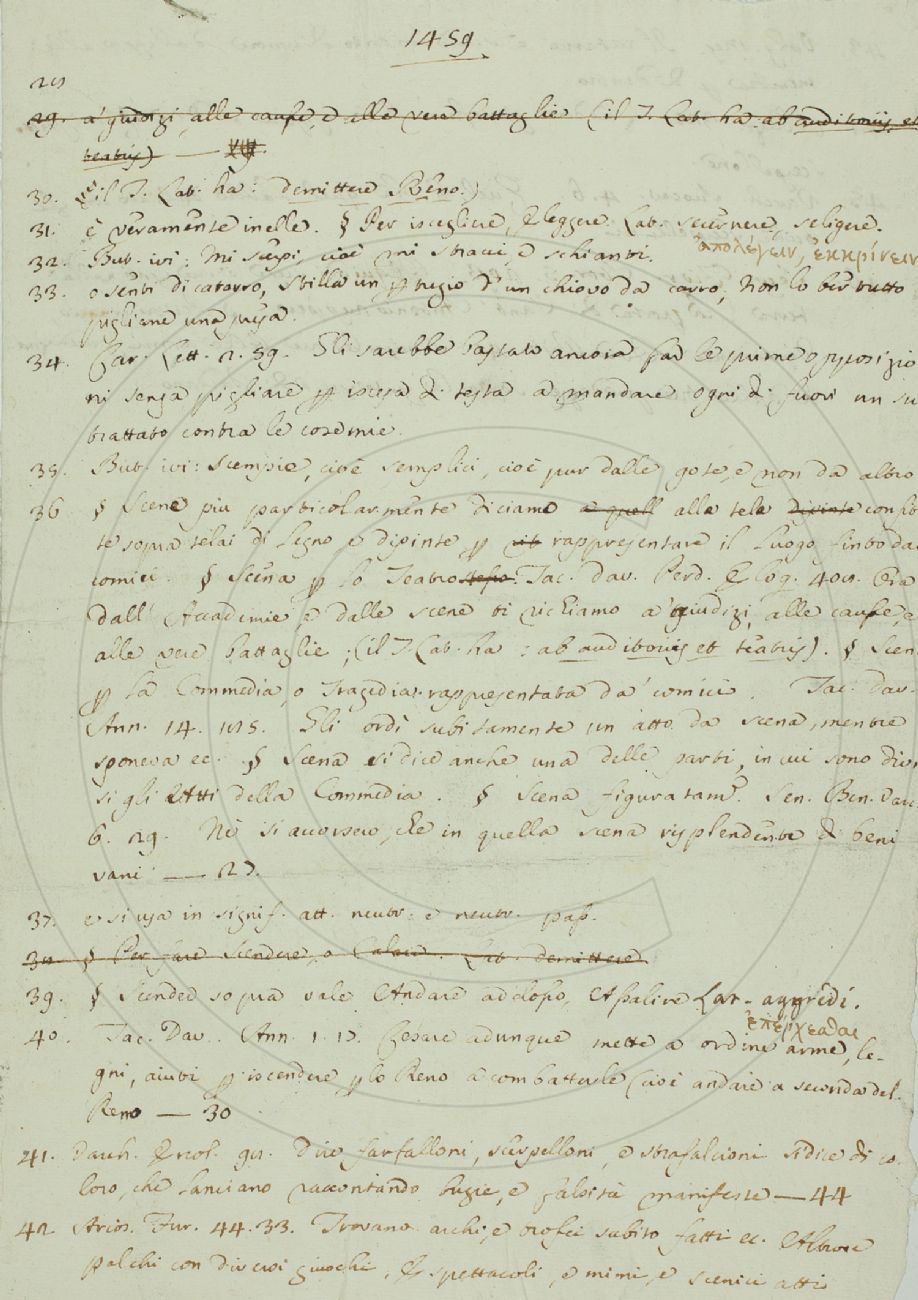 1459
29. a' giudizi, alle cause, e alle vere battaglie (il T. Lat. ha: ab auditoriis, et
teatris) —
30. (il T. Lat. ha: demittere Rheno.)
31. è veramente in elle. § Per iscegliere, Eleggere. Lat. secernere, seligere.
ἀπολέγειν, ἐκκρίνειν
32. But. ivi: Mi scerpi, cioè mi stracci, e schianti.
33. o senti di catarro, Stilla un pertugio d' un chiovo da carro, Non lo ber tutto
pigliane una presa.
34. Car. Lett. 2. 59. Gli sarebbe bastato ancora far le prime opposizio
ni senza pigliare per iscesa di testa a mandare ogni dì fuori un su
trattato contra le cose mie.
35. But. ivi: Scempie, cioè semplici, cioè pur dalle gote, e non da altro
36. § Scene più particolarmente diciamo a quell alle tele dipinte confit
te sopra telai di legno e dipinte per rappresentare il luogo finto da
comici. § Scena per lo Teatro stesso. Tac. Dav. Perd. Eloq. 402. Ora
dall' Accademie, e dalle scene ti richiamo a' giudizi, alle cause, e
alle vere battaglie; (il T. Lat. ha: ab auditoriis et teatris). § Scen
per la Commedia, o Tragedia rappresentata da' comici. Tac. Dav.
Ann. 14. Gli ordì subitamente un atto da scena, mentre
sponeva ec. § Scena si dice anche una delle parti, in cui sono divi
si gli Atti della Commedia. § Scena figuratam. Sen. Ben. Varc.
6. 29. Nè si accorsero, che in quella scena risplendente di beni
vani — 27.
37. e si usa in signif. att. neutr. e neutr. pass.
38. § Per fare Scendere, o Calare. Lat. demittere.
39. § Scender sopra vale Andare addosso, Assalire Lat. aggrédi.
ἐπέρχεσθαι
40. Tac. Dav. Ann. 1. 17. Cesare adunque mette a ordine arme, le-
gni, aiuti per iscendere per lo Reno a combatterle (cioè andare a seconda del
Reno — 30
41. Varch. Ercol. 92. Dire farfalloni, scerpelloni, e strafalcioni si dice di co-
loro, che lanciano raccontando bugie, e falsità manifeste — 44
42. Arios. Fur. 44. 33. Trovano archi, e trofei subito fatti ec. Altrove
palchi con diversi giuochi, e spettacoli, e mimi, e scenici atti